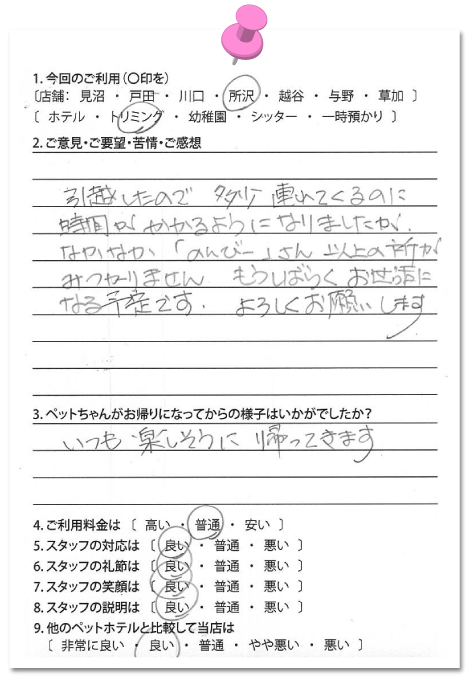 1. 今回のご利用(〇印を)
〔店舗： 見沼 ・ 戸田 ・ 川口 ・ 所沢 ・ 越谷 ・ 与野 ・ 草加 〕
〔 ホテル ・ トリミング ・ 幼稚園 ・ シッター ・ 一時預かり 〕
2. ご意見・ご要望・苦情・ご感想
引越したので 多少 連れてくるのに
時間が かかるようになりましたが、
なかなか 「のんびー」さん 以上の所が
みつかりません もうしばらく お世話に
なる予定です. よろしくお願いします
3. ペットちゃんがお帰りになってからの様子はいかがでしたか?
いつも 楽しそうに 帰ってきます
4. ご利用料金は 〔 高い ・ 普通 ・ 安い 〕
5. スタッフの対応は 〔 良い ・ 普通 ・ 悪い 〕
6. スタッフの礼節は 〔 良い ・ 普通 ・ 悪い 〕
7. スタッフの笑顔は 〔 良い ・ 普通 ・ 悪い 〕
8. スタッフの説明は 〔 良い ・ 普通 ・ 悪い 〕
9. 他のペットホテルと比較して当店は
〔 非常に良い ・ 良い ・ 普通 ・ やや悪い ・ 悪い 〕